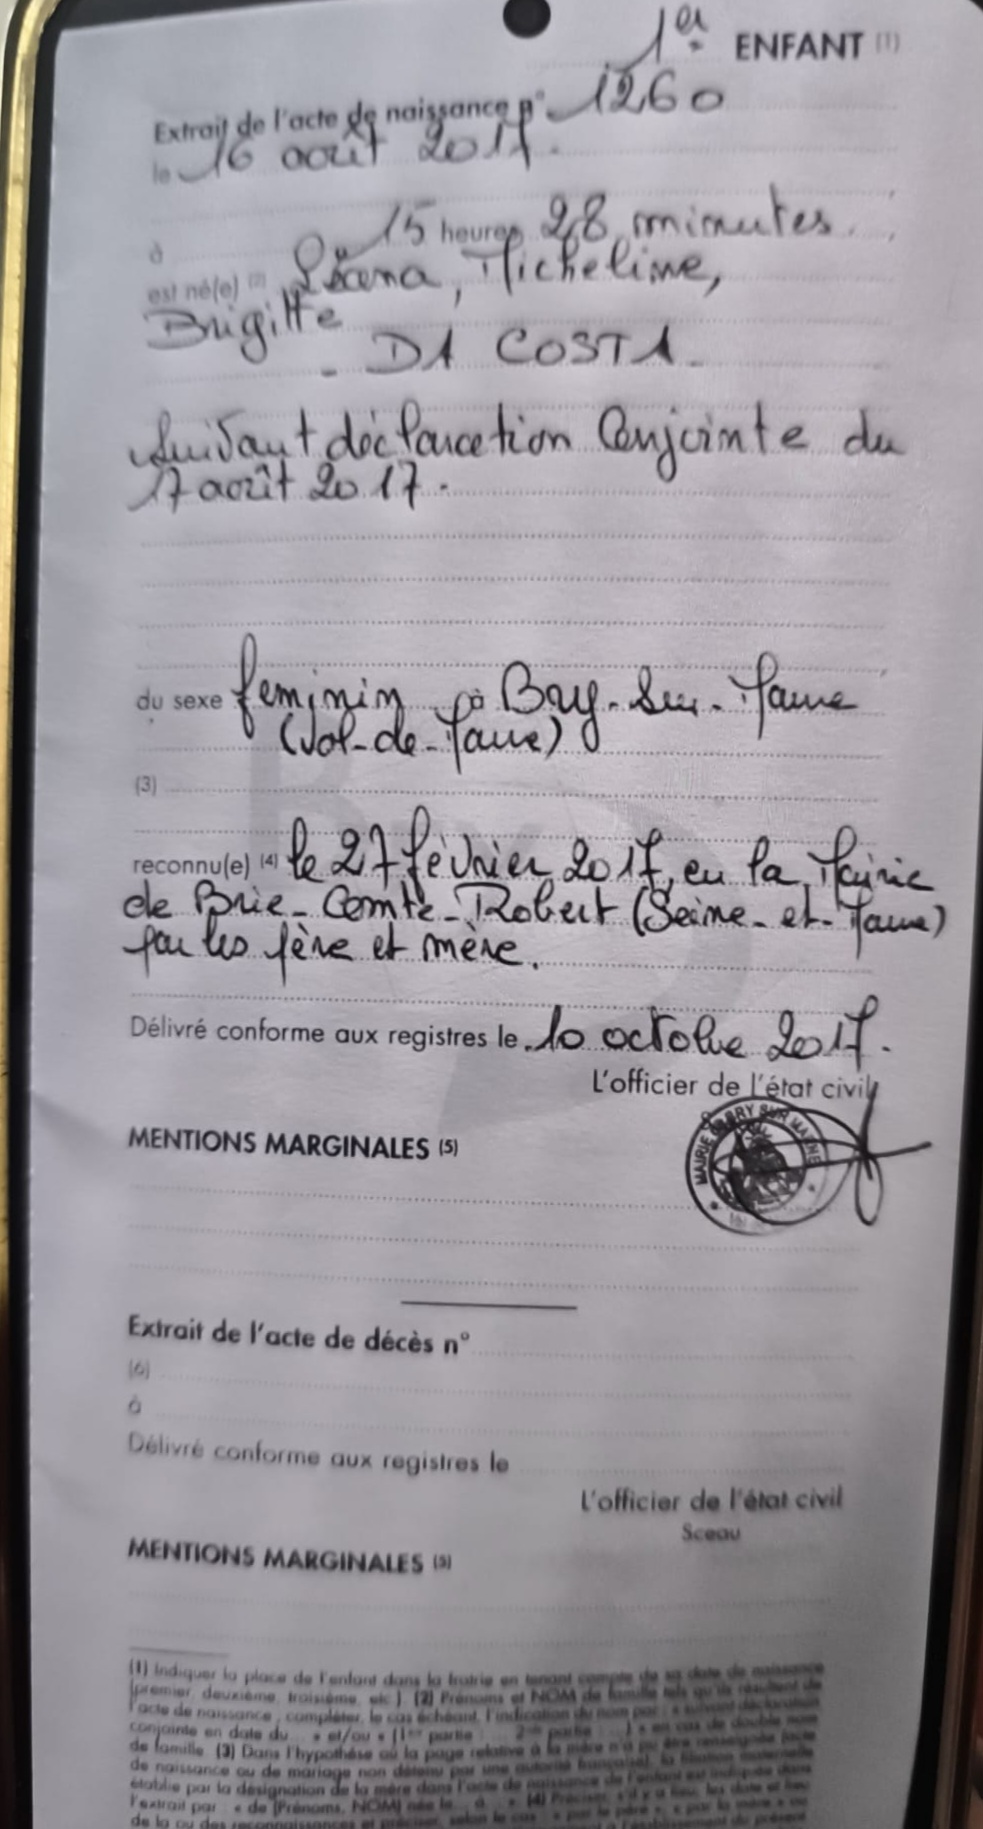 1er ENFANT (1)
Extrait de l'acte de naissance n° 1260
le 16 août 2017.
à 15 heures 28 minutes.
est né(e) (2) Micheline,
Brigitte
- DA COSTA -
Suivant déclaration Conjointe du
17 août 2017.
du sexe féminin à Bry-Sur-Marne
(Val-de-Marne)
(3)
reconnu(e) (4) le 27 février 2017, en la Mairie
de Brie-Comte-Robert (Seine-et-Marne)
par les père et mère.
Délivré conforme aux registres le 10 octobre 2017.
L'officier de l'état civil
MAIRIE DE BRY SUR MARNE
MENTIONS MARGINALES (5)
Extrait de l'acte de décès n°
(6)
à
Délivré conforme aux registres le
L'officier de l'état civil
Sceau
MENTIONS MARGINALES (5)
(1) Indiquer la place de l'enfant dans la fratrie en tenant compte de sa date de naissance
(premier, deuxième, troisième, etc.). (2) Prénoms et NOM de famille tels qu'ils résultent de
l'acte de naissance ; compléter, le cas échéant, l'indication du nom par : « suivant déclaration
conjointe en date du... » et/ou « (1re partie : ... 2nde partie : ...) » en cas de double nom
de famille. (3) Dans l'hypothèse où la page relative à la mère n'a pu être renseignée (acte
de naissance ou de mariage non détenu par une autorité française), la filiation maternelle
établie par la désignation de la mère dans l'acte de naissance de l'enfant est indiquée dans
l'extrait par : « de [Prénoms, NOM] née le... à... ». (4) Préciser, s'il y a lieu, les date et lieu
de la ou des reconnaissances et préciser, selon le cas : « par le père », « par la mère » ou